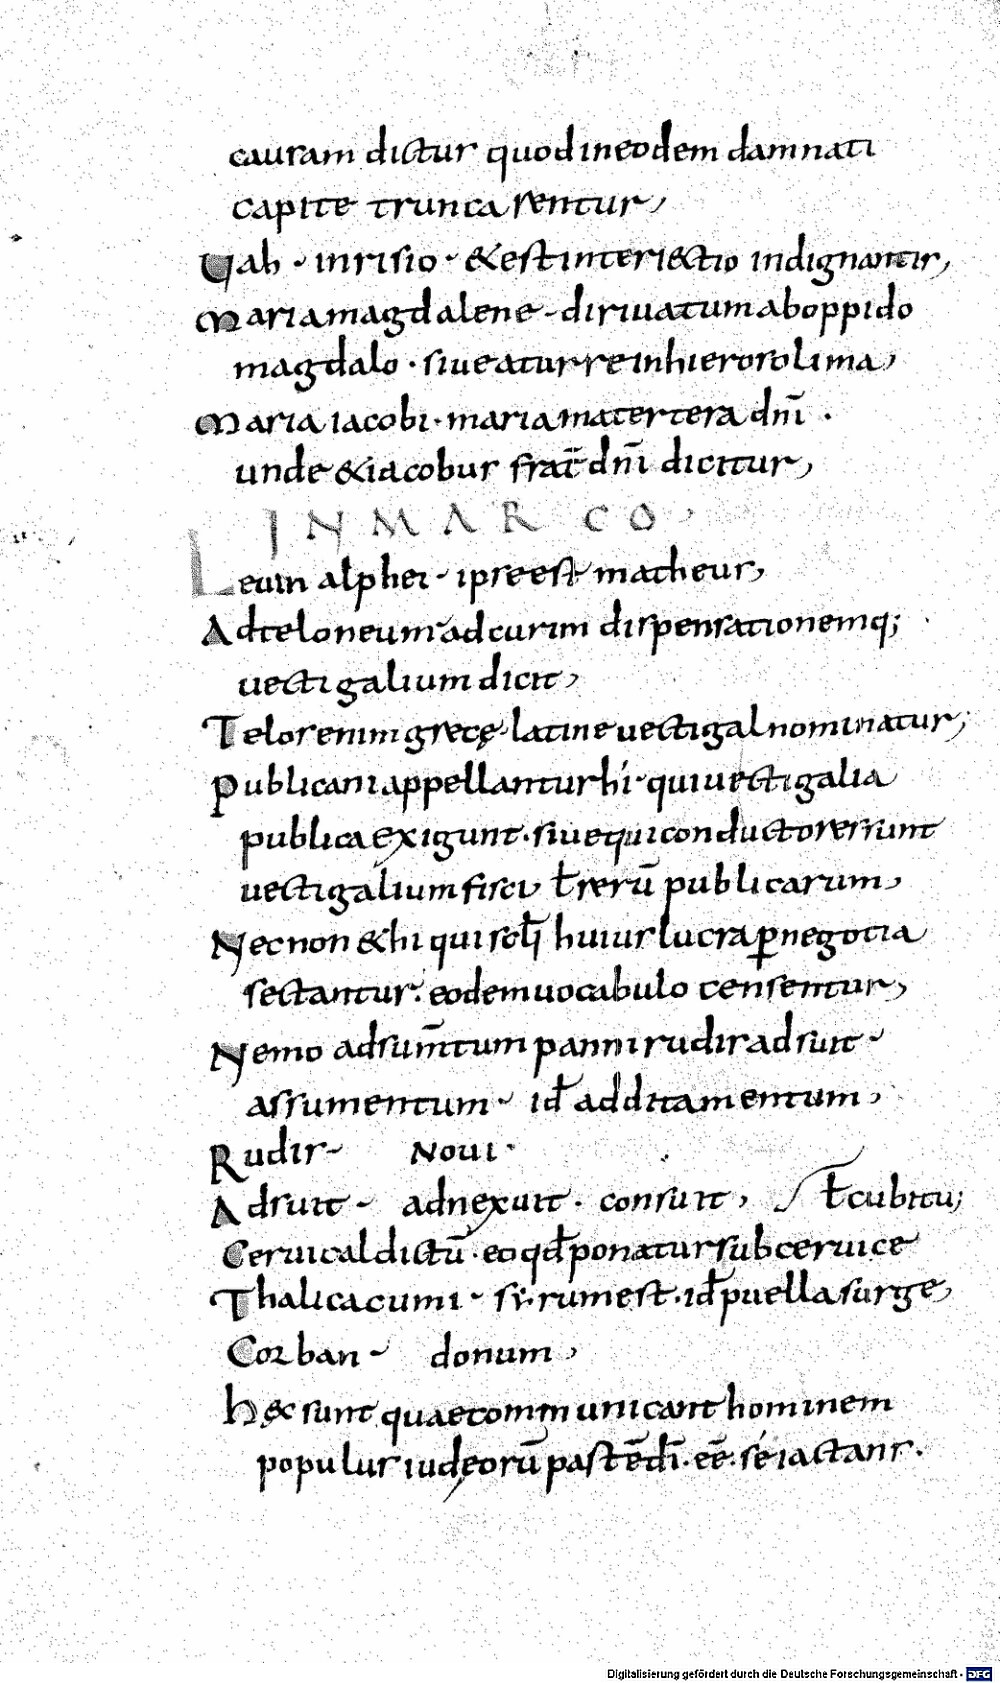 causam dictus quod in eodem damnati
capite truncarentur,
Uah · inrisio · & est interi&ctio indignantis,
Maria magdalene · diriuatum ab oppido
magdalo · siue a turre in hierosolima,
Maria iacobi · maria matertera dnī ·
unde & iacobus frat̄ dnī dicitur,
IN MARCO,
Leuin alphei · ipse est matheus,
Ad teloneum ad curim dispensationemq;
uectigalium dicit,
Telos enim grecę · latine uectigal nominatur;
Publicani appellantur hi · qui uectigalia
publica exigunt · siue qui conductores sunt
uectigalium fisci, ł rerū publicarum,
Necnon & hi qui sclī huius lucra ꝑ negotia
sectantur · eodem uocabulo censentur,
Nemo adsum̄tum panni rudis adsuit ·
assumentum · id̄ additamentum,
Rudis · noui ·
Adsuit · adnexuit · consuit, ł cubitu;
Ceruical dictū · eo qd̄ ponatur sub ceruice
Thalicacumi · sy·rum est · id̄ puella surge,
Corban · donum,
hęc sunt quae communicant hominem
populus iudęorū past ēdī · eē · se iactans ·
Digitalisierung gefördert durch die Deutsche Forschungsgemeinschaft - DFG